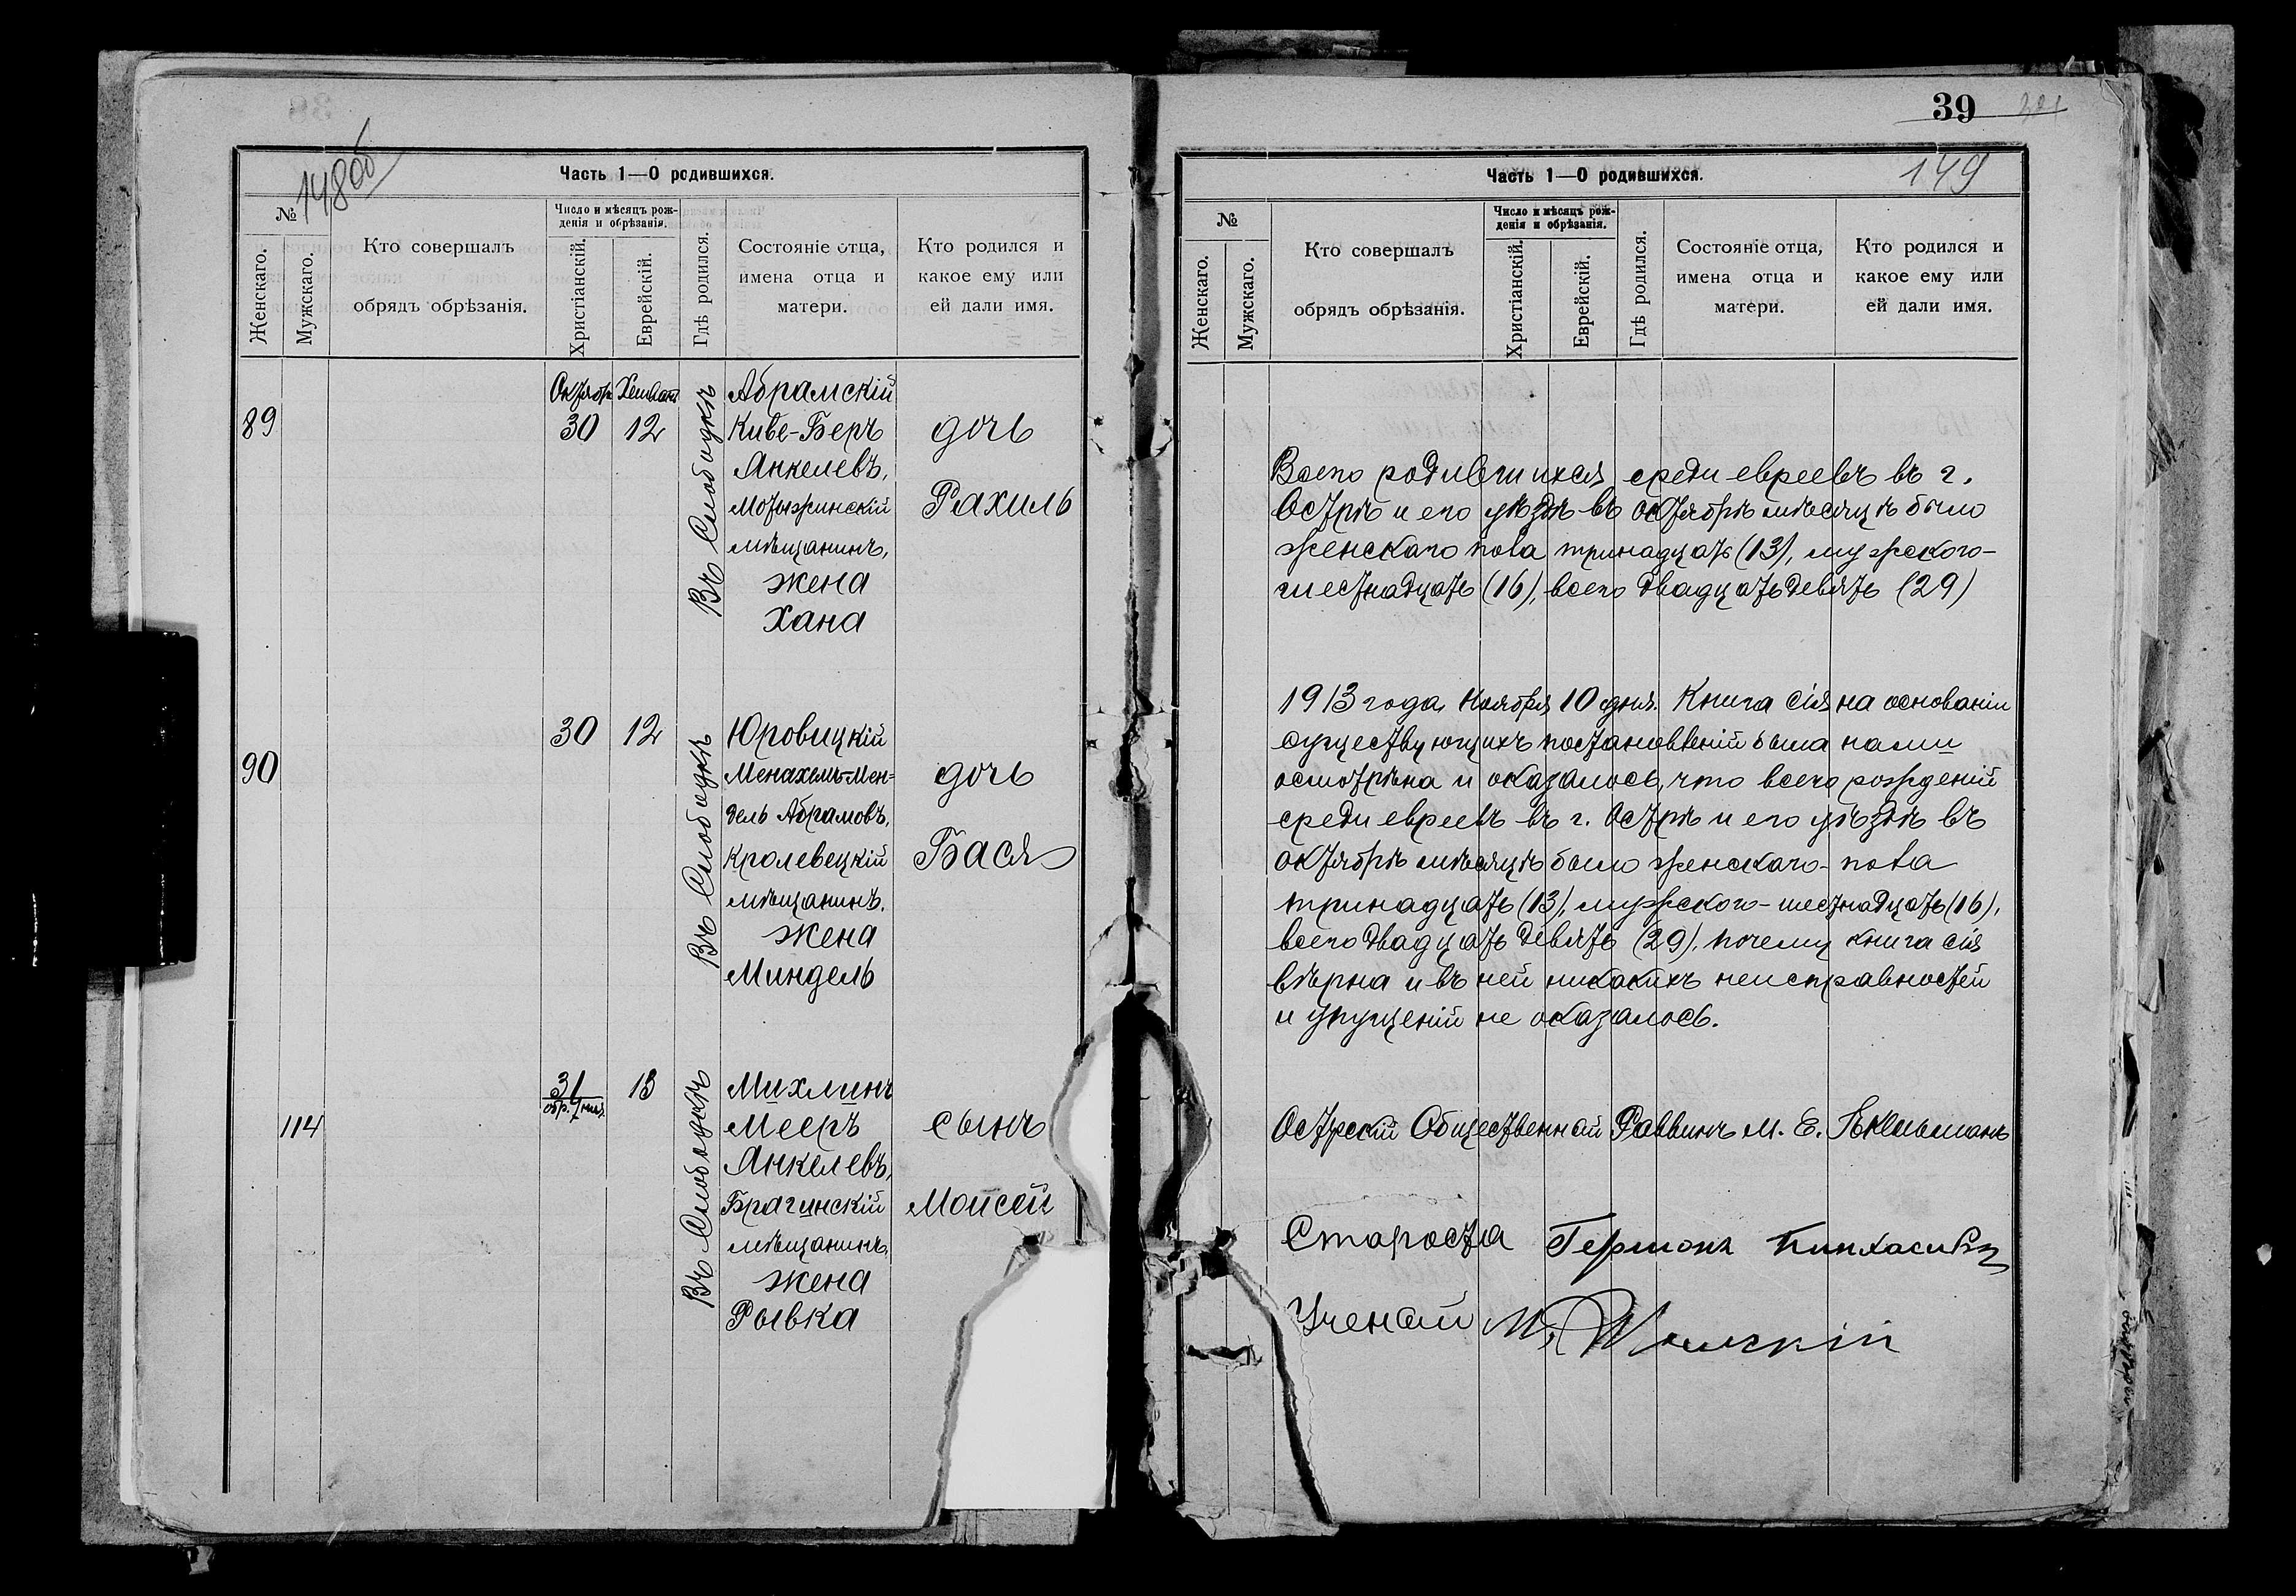 148об
Часть 1—О родившихся.
№
Женскаго.
Мужскаго.
Кто совершалъ
обрядъ обрѣзанія.
Число и мѣсяцъ рож-
денія и обрѣзанія.
Христіанскій.
Еврейскій.
Гдѣ родился.
Состояніе отца,
имена отца и
матери.
Кто родился и
какое ему или
ей дали имя.
89
Октябр Хешван
30 12
Въ Слободкѣ
Абрамскій
Киве-Беръ
Анкелевъ,
Мотыжинскій
мѣщанинъ,
жена
Хана
дочь
Рахиль
90
30 12
Въ Слободкѣ
Юровицкій
Менахемъ-Мен-
дель Абрамовъ,
Кролевецкій
мѣщанинъ.
жена
Миндель
дочь
Бася
114
31
обр. 7 ноя.
13
Въ Слободкѣ
Михлинъ
Мееръ
Анкелевъ,
Брагинскій
мѣщанинъ,
жена
Рывка
сынъ
Моисей
39
149
Часть 1—О родившихся.
№
Женскаго.
Мужскаго.
Кто совершалъ
обрядъ обрѣзанія.
Число и мѣсяцъ рож-
денія и обрѣзанія.
Христіанскій.
Еврейскій.
Гдѣ родился.
Состояніе отца,
имена отца и
матери.
Кто родился и
какое ему или
ей дали имя.
Всего родившихся среди евреевъ въ г.
Острѣ и его уѣздѣ въ октябрѣ мѣсяцѣ было
женскаго пола тринадцать (13), мужского-
шестнадцать (16), всего двадцать девять (29)
1913 года, Ноября 10 дня. Книга сія на основаніи
существующихъ постановленій была нами
осмотрѣна и оказалось, что всего рожденій
среди евреевъ въ г. Острѣ и его уѣздѣ въ
октябрѣ мѣсяцѣ было женскаго-пола
тринадцать (13), мужского-шестнадцать (16),
всего двадцать девять (29), почему книга сія
вѣрна и въ ней никакихъ неисправностей
и упущеній не оказалось.
Остерскій Общественный Раввинъ М. Е.
Староста Гершонъ
Ученый М.